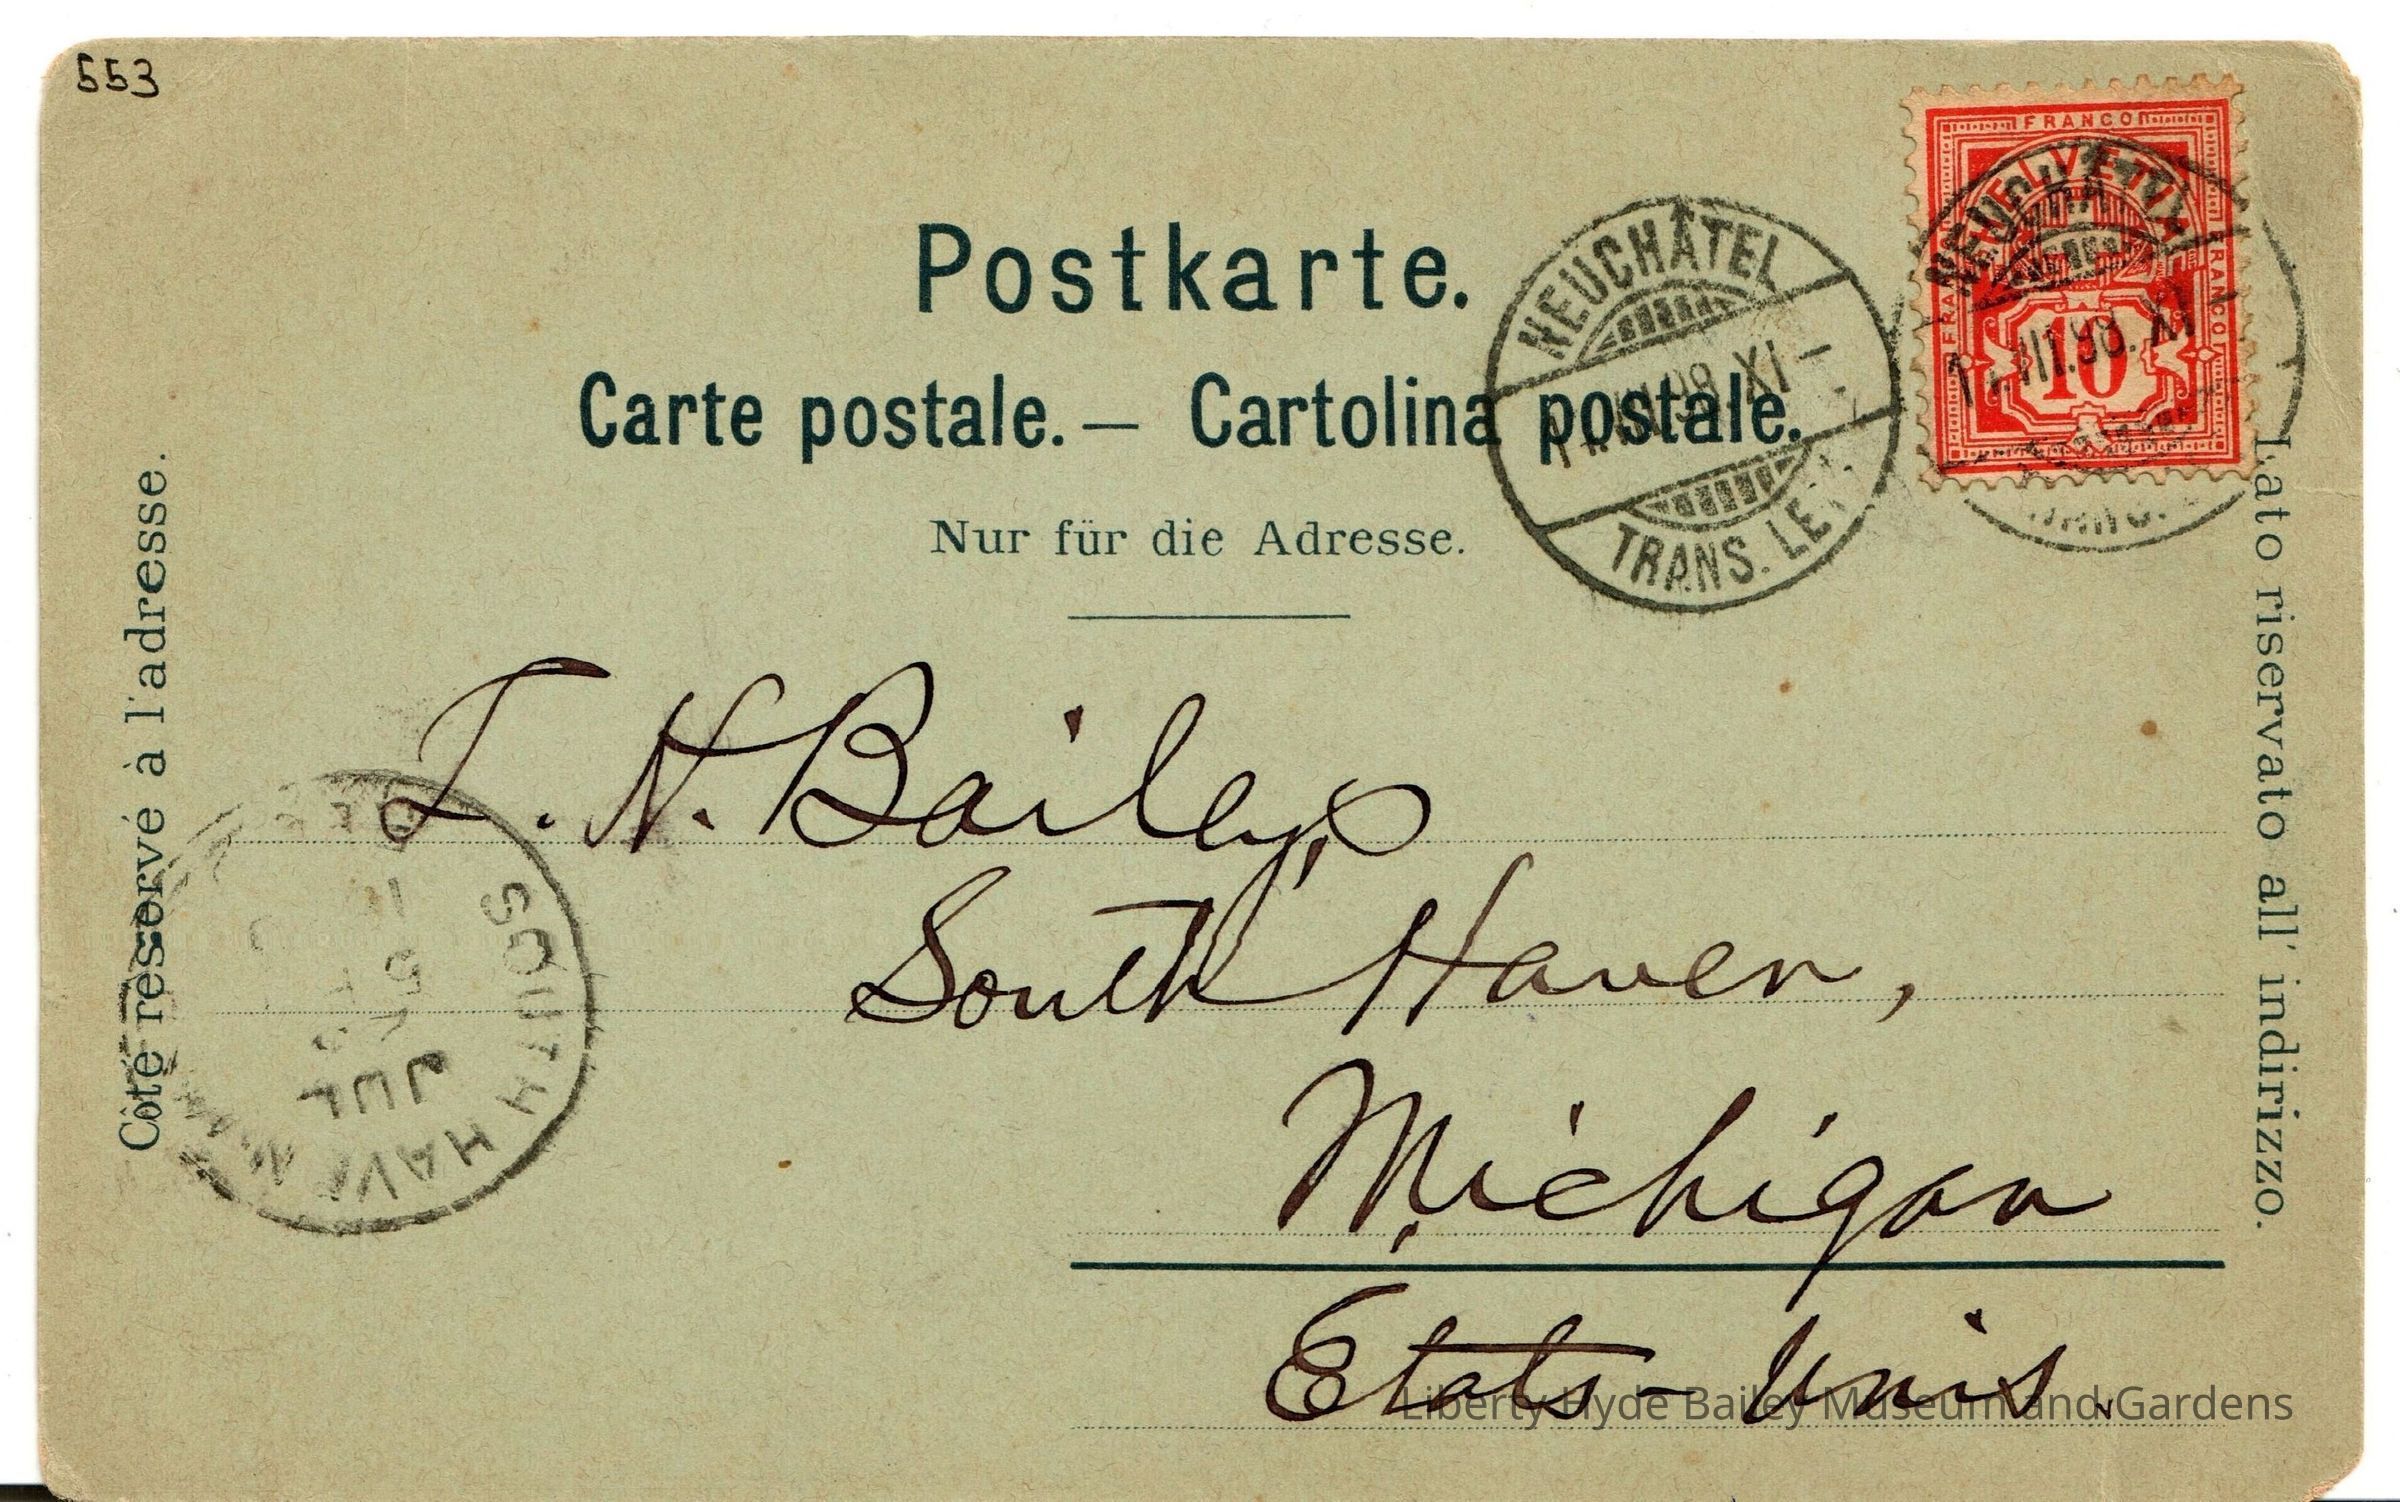 553
FRANCO
HELVETIA
FRANCO
FRANCO
10
NEUCHÂTEL
NEUCHÂTEL
XI–
TRANS. LETT.
.VII.98.XI
Postkarte.
Carte postale.— Cartolina postale.
Nur für die Adresse.
Côté réservé à l'adresse.
Lato riservato all' indirizzo.
L. H. Bailey,
South Haven,
Michigan
Etats-Unis.
SOUTH HAVEN
JUL
Liberty Hyde Bailey Museum and Gardens